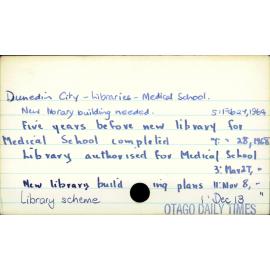 Dunedin City - Libraries - Medical School.
New library building needed. 5: Feb 27, 1964
Five years before new library for
Medical School completed 7: - 28, 1968
Library authorised for Medical School
3: Mar 27, -
New library building plans 11: Nov 8, -
Library scheme 1: Dec 13 "
OTAGO DAILY TIMES